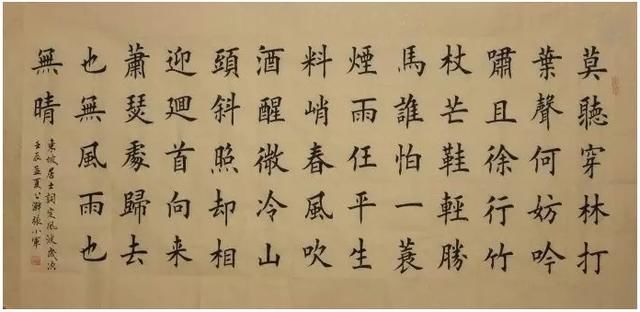 莫聽穿林打
葉聲何妨吟
嘯且徐行竹
杖芒鞋輕勝
馬誰怕一蓑
煙雨任平生
料峭春風吹
酒醒微冷山
頭斜照却相
迎迴首向来
蕭瑟處歸去
也無風雨也
無晴
東坡居士詞定風波歲次
壬辰孟夏張小軍